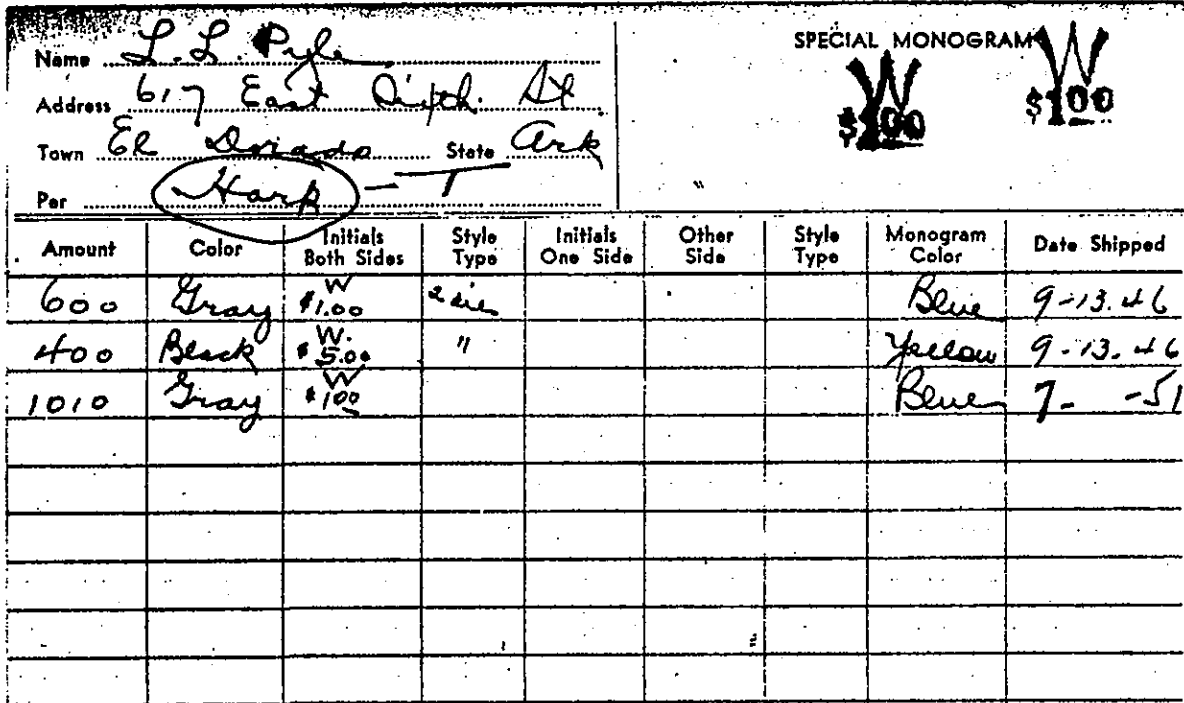 Name L. L. Pyle
Address 617 East Sixth. St
Town El Dorado State Ark
Per Harp - T
SPECIAL MONOGRAM
W $100
W $100
Amount Color Initials Both Sides Style Type Initials One Side Other Side Style Type Monogram Color Date Shipped
600 Gray W $1.00 2 dies Blue 9-13.46
400 Black W. $5.00 " Yellow 9-13.46
1010 Gray W $100 Blue 7- -51